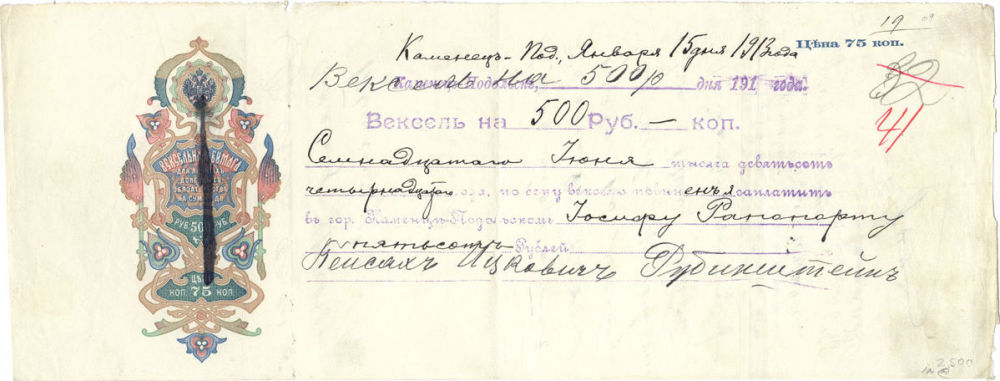 19
Цѣна 75 коп.
Каменецъ-Под. Января 15 дня 1913 года
Вексель на 500р
Каменецъ-Подольскъ, дня 191 года.
32
41
Вексель на 500 Руб. — коп.
Семнадцатаго Іюня тысяча девятьсотъ
четырнадцатаго ода, по сему векселю повиненъ я заплатить
въ гор. Каменцъ-Подольскомъ Іосифу Рапапорту
пятьсотъ Рублей
Пейсахъ Ицковичъ Рубинштейнъ
ВЕКСЕЛЬНАЯ БУМАГА
ДЛЯ
НА СУММУ ДО
РУБ. 500 РУБ.
ЦѢНА
КОП. 75 КОП.
2500